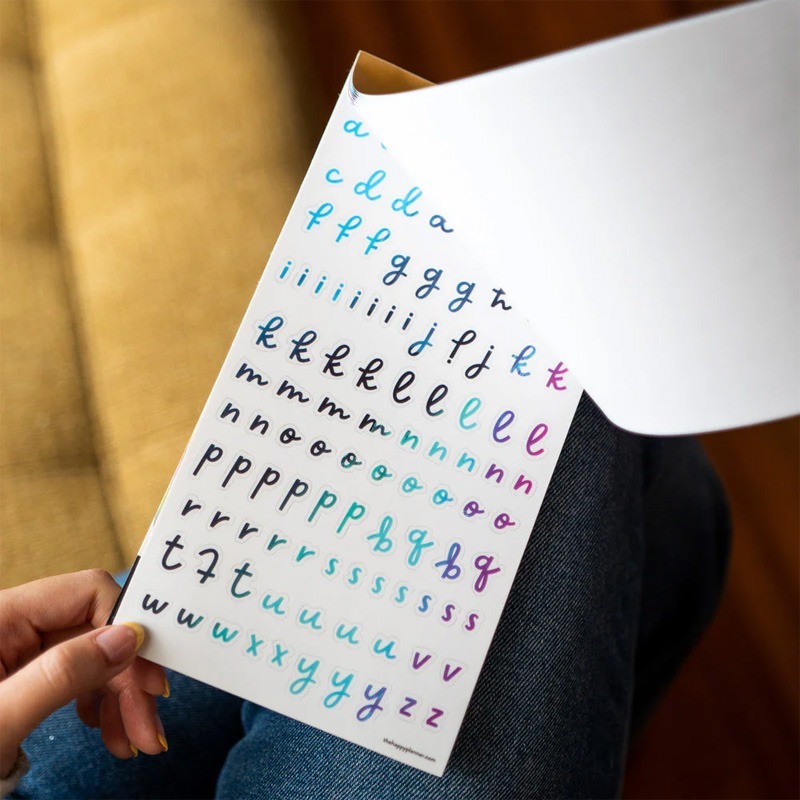 a
c d d a
f f f g g g h
i i i i i i i i j j j k k
k k k k l l l l l
m m m m n n n n n
n n o o o o o o o o
p p p p p p q q q q
r r r r r s s s s s s s
t t t u u u u v v
w w w x x y y y z z
thehappyplanner.com